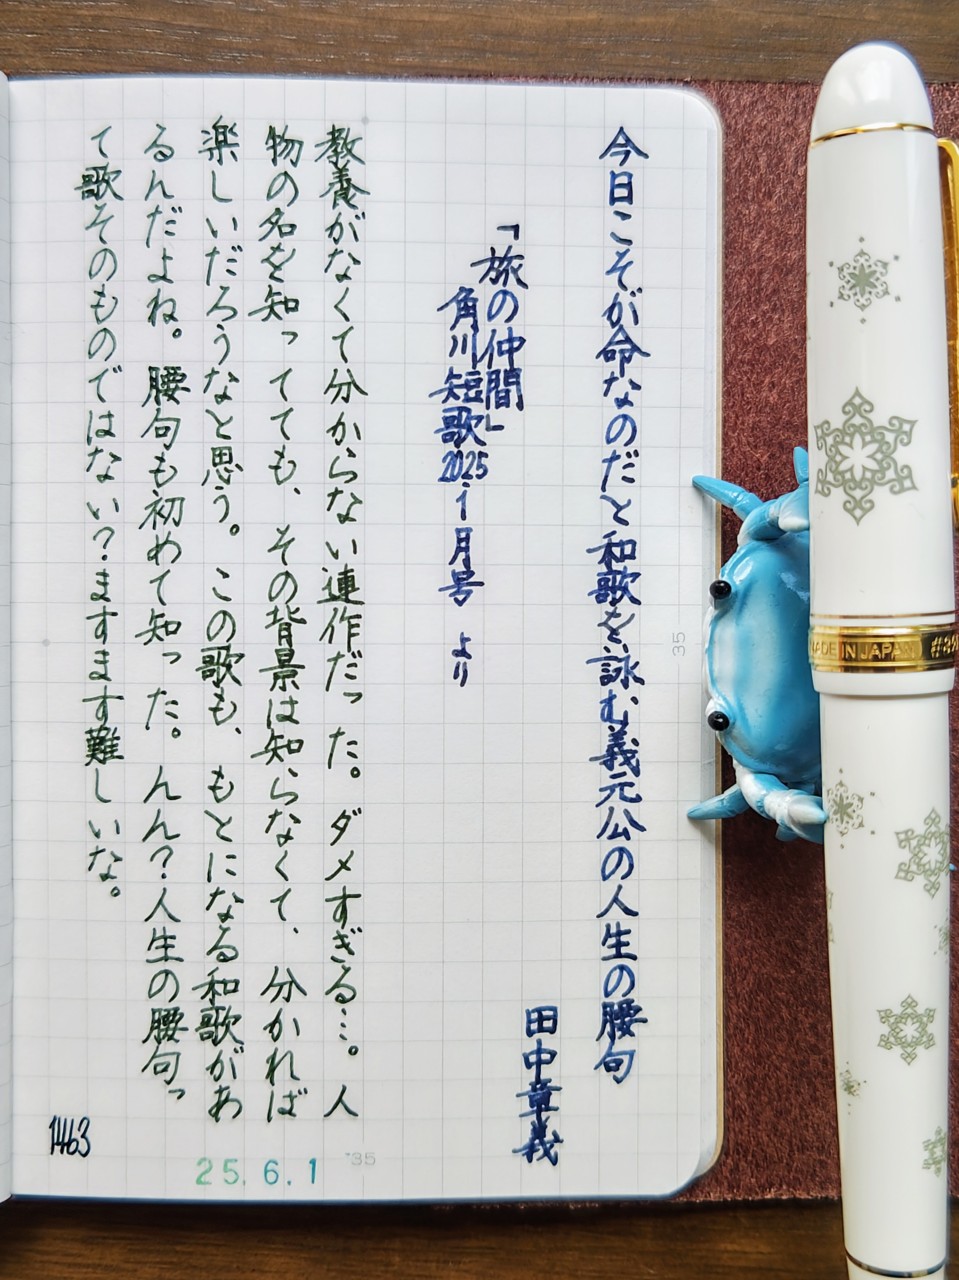 今日こそが命なのだと和歌を詠む義元公の人生の腰句
田中章義
「旅の仲間」
角川短歌2025.1月号 より
教養がなくて分からない連作だった。ダメすぎる…。人
物の名を知ってても、その背景は知らなくて、分かれば
楽しいだろうなと思う。この歌も、もとになる和歌があ
るんだよね。腰句も初めて知った。んん？人生の腰句っ
て歌そのものではない？ますます難しいな。
1463
25.6.1
35
35
MADE IN JAPAN